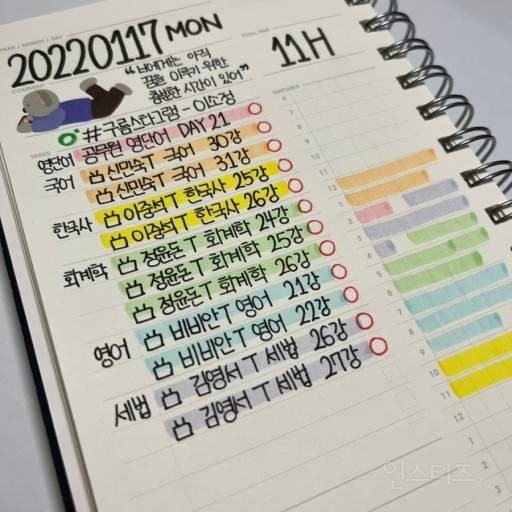 YEAR / MONTH / DAY
20220117 MON
TOTAL TIME
11H
COMMENT
"나에게는 아직
꿈을 이루기 위한
충분한 시간이 있어"
#구름스타그램 - 이소정
TASKS
TIMETABLE
영단어 공무원 영단어 DAY 21
국어 신민숙T 국어 30강
신민숙T 국어 31강
한국사 이중석T 한국사 25강
이중석T 한국사 26강
회계학 정윤돈T 회계학 24강
정윤돈T 회계학 25강
정윤돈T 회계학 26강
영어 비비안T 영어 21강
비비안T 영어 22강
세법 김영서T 세법 26강
김영서T 세법 27강
6
7
8
9
10
11
12
1
2
3
4
5
6
7
8
9
10
11
12
1
2
3
인스티즈